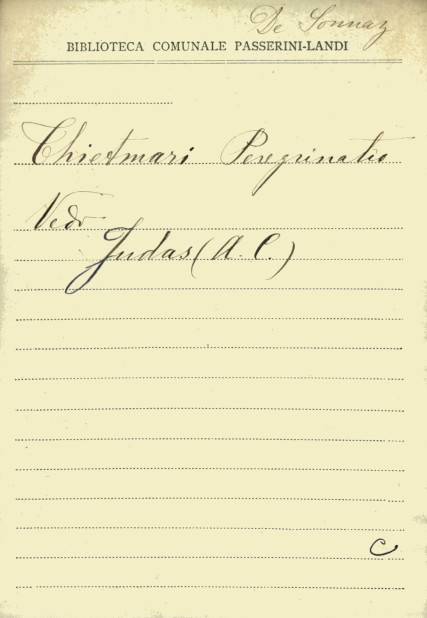 De Sonnaz
BIBLIOTECA COMUNALE PASSERINI-LANDI
Thietmari Peregrinatio
Vedi
Judas (A. C.)
C